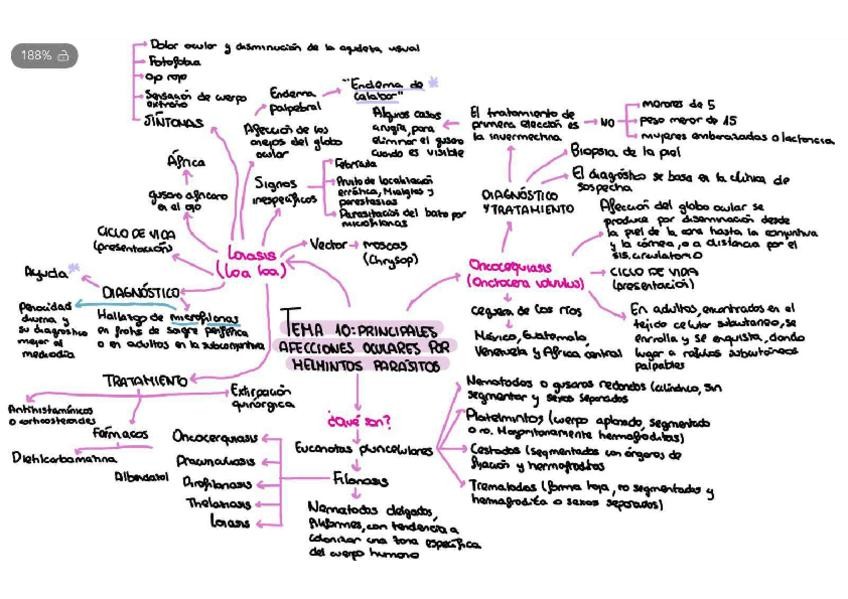 188%
Dolor ocular y disminución de la agudeza visual
Fotofobia
ojo rojo
Sensación de cuerpo
extraño
SÍNTOMAS
África
gusano africano
en el ojo
CICLO DE VIDA
(presentación)
Edema
palpebral
"Endema de
calabar"
Afección de los
anejos del globo
ocular
Signos
inespecíficos
Febrícula
Prurito de localización
errática, Mialgias y
parestesias
Parasitación del bazo por
microfilarias
Loiasis
(Loa loa)
Vector → moscas
(Chrysop)
Ayuda
DIAGNÓSTICO
Periocidad
diurna y
su diagnóstico
mejor al
mediodía
Hallazgo de microfilarias
en frotis de sangre periférica
o en adultos en la subconjuntiva
TRATAMIENTO
Antihistamínicos
o corticosteroides
Extirpación
quirúrgica
Fármacos
Diethilcarbamacina
Albendazol
Algunos casos
cirugía, para
eliminar el gusano
cuando es visible
El tratamiento de
primera elección es
la ivermectina
NO
menores de 5
peso menor de 15
mujeres embarazadas o lactancia
Biopsia de la piel
El diagnóstico se basa en la clínica de
sospecha
DIAGNÓSTICO
Y TRATAMIENTO
Afección del globo ocular se
produce por diseminación desde
la piel de la cara hasta la conjuntiva
y la córnea, o a distancia por el
sis. circulatorio
Oncocerquiasis
(Onchocerca volvulus)
CICLO DE VIDA
(presentación)
ceguera de los ríos
México, Guatemala,
Venezuela y África central
En adultos, encontrados en el
tejido celular subcutaneo, se
enrolla y se enquista, dando
lugar a nódulos subcutáneos
palpables
TEMA 10: PRINCIPALES
AFECCIONES OCULARES POR
HELMINTOS PARÁSITOS
¿Qué son?
Eucariotas pluricelulares
Nematodos o gusanos redondos (cilíndrico, sin
segmentar y sexos separados
Platelmintos (cuerpo aplanado, segmentado
o no. Mayoritariamente hermafroditas)
Cestodos (segmentados con órganos de
fijación y hermafroditas
Trematodos (forma hoja, no segmentados y
hermafrodita o sexos separados)
Filariasis
Oncocerquiasis
Dracunculiasis
Dirofilariasis
Thelaziasis
Loiasis
Nematodos delgados,
filiformes, con tendencia a
colonizar una zona específica
del cuerpo humano